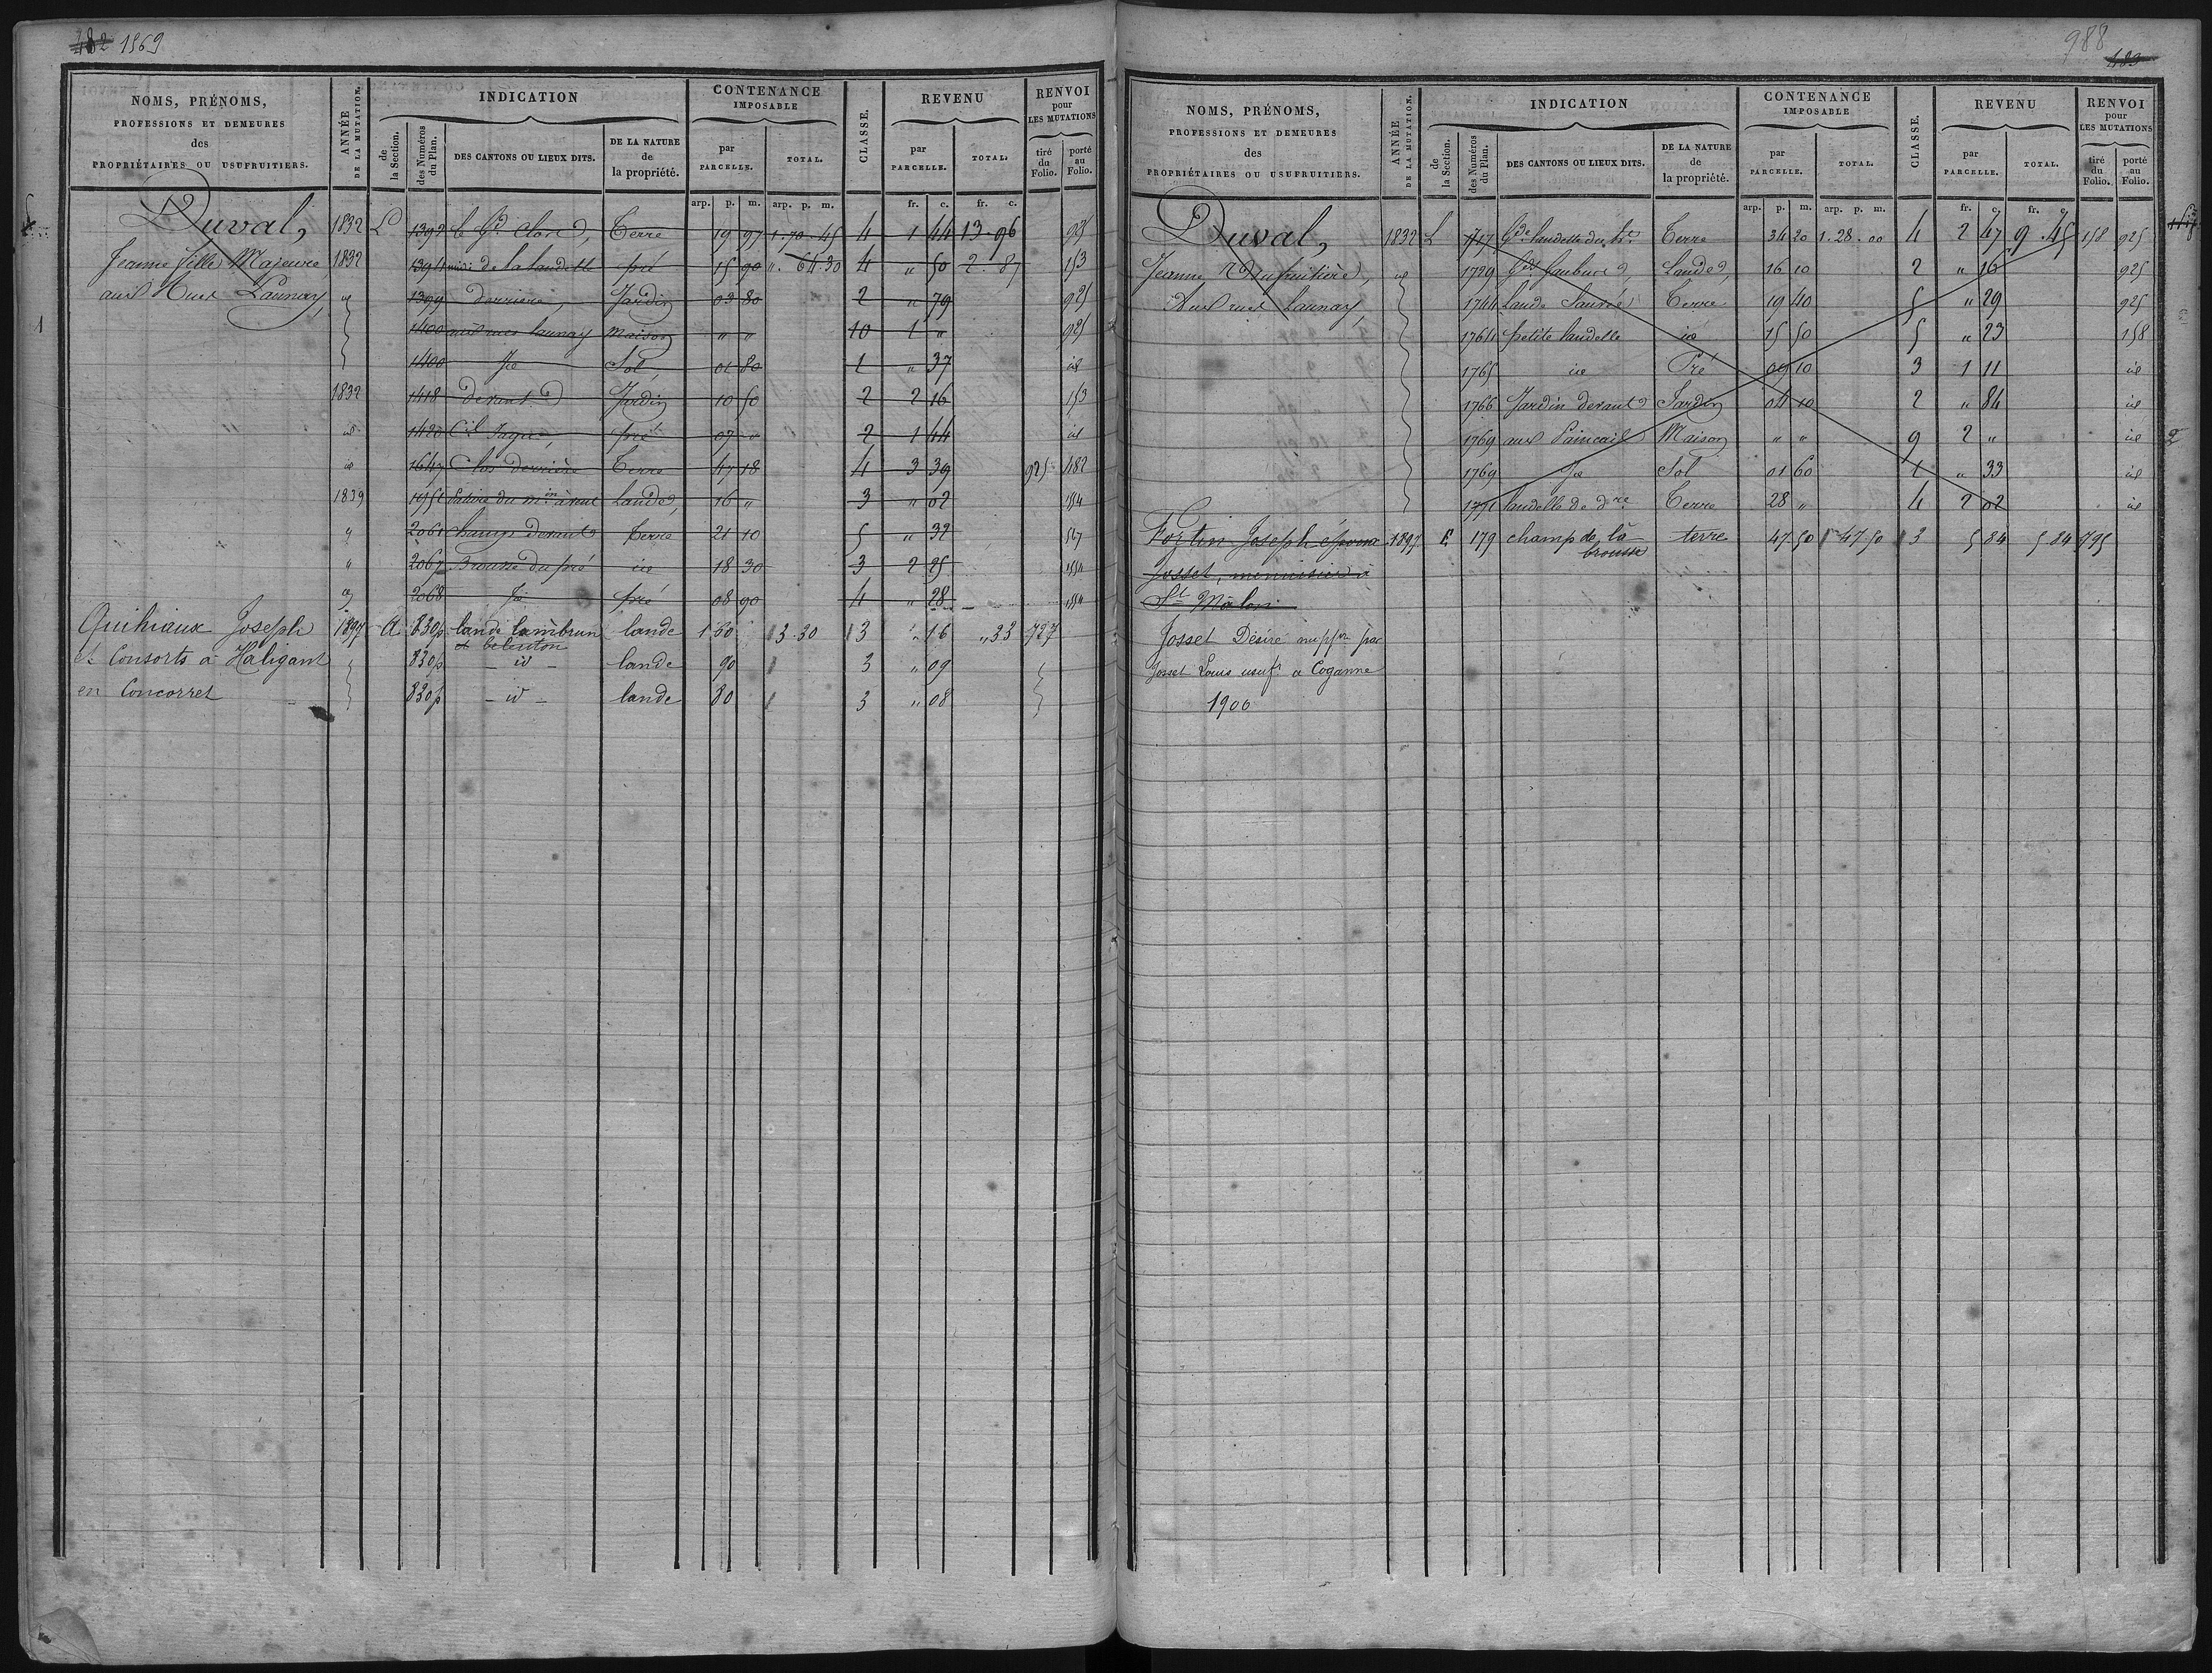 482 1869
NOMS, PRÉNOMS,
PROFESSIONS ET DEMEURES
des
PROPRIÉTAIRES OU USUFRUITIERS.
ANNÉE
DE LA MUTATION.
INDICATION
de
la Section.
des Numéros
du Plan.
DES CANTONS OU LIEUX DITS.
DE LA NATURE
de
la propriété.
CONTENANCE
IMPOSABLE
par
PARCELLE.
TOTAL.
CLASSE.
REVENU
par
PARCELLE.
TOTAL.
RENVOI
pour
LES MUTATIONS
tiré
du
Folio.
porté
au
Folio.
arp. p. m. arp. p. m. fr. c. fr. c.
Duval, 1832 L 1392 le Gd Clos Terre 19 97 1.70.45 4 1 44 13.96
Jeanne fille Majeure 1832 1394 de la landelle pré 15 90 ". 64.30 4 " 50 2.87 153
aux Rues Launay, id 1399 derrière Jardin 03 80 2 " 79 925
1400 aux rues launay Maison " " 10 1 " 925
1400 Id Sol 01 80 1 " 37 id
1832 1418 devant Jardin 10 50 2 2 16 153
id 1420 pré 07 " 2 1 44 id
id 1647 Clos derrière Terre 47 18 4 3 39 925 482
1839 1951 du min à vent Lande 16 " 3 " 02 1554
" 2061 Champ devant Terre 21 10 5 " 32 567
" 2067 Brousse du pré id 18 30 3 2 25 1554
2068 Id pré 08 90 4 " 28 1554
Quihiaux Joseph 1897 A 830p lande lambrun lande 1 60 3.30 3 " 16 " 33 727
et beleuton
et Consorts à Haligant 830p - id - lande 90 3 " 09
en Concorret 830p - id - lande 80 3 " 08
988
483
NOMS, PRÉNOMS,
PROFESSIONS ET DEMEURES
des
PROPRIÉTAIRES OU USUFRUITIERS.
ANNÉE
DE LA MUTATION.
INDICATION
de
la Section.
des Numéros
du Plan.
DES CANTONS OU LIEUX DITS.
DE LA NATURE
de
la propriété.
CONTENANCE
IMPOSABLE
par
PARCELLE.
TOTAL.
CLASSE.
REVENU
par
PARCELLE.
TOTAL.
RENVOI
pour
LES MUTATIONS
tiré
du
Folio.
porté
au
Folio.
arp. p. m. arp. p. m. fr. c. fr. c.
Duval, 1832 L 1717 Gde landelle Terre 34 20 1.28.00 4 2 47 9.45 158 925
Jeanne Usufruitière, id 1729 Lande 16 10 2 " 16 925
Aux rues Launay, 1744 lande Terre 19 40 5 " 29 925
1764 petite landelle id 15 50 5 " 23 158
1765 id Pré 09 10 3 1 11 id
1766 Jardin devant Jardin 04 10 2 " 84 id
1769 aux Maison " " 9 2 " id
1769 Id Sol 01 60 1 " 33 id
1771 landelle de dre Terre 28 " 4 2 02 id
Fortin Joseph époux 1897 E 179 champ de la terre 47 50 47.50 3 5 84 5 84 795
brousse
Josset, menuisier à
St Malon
Josset Désiré nu ppre par
Josset Louis usuf. à Coganne
1900